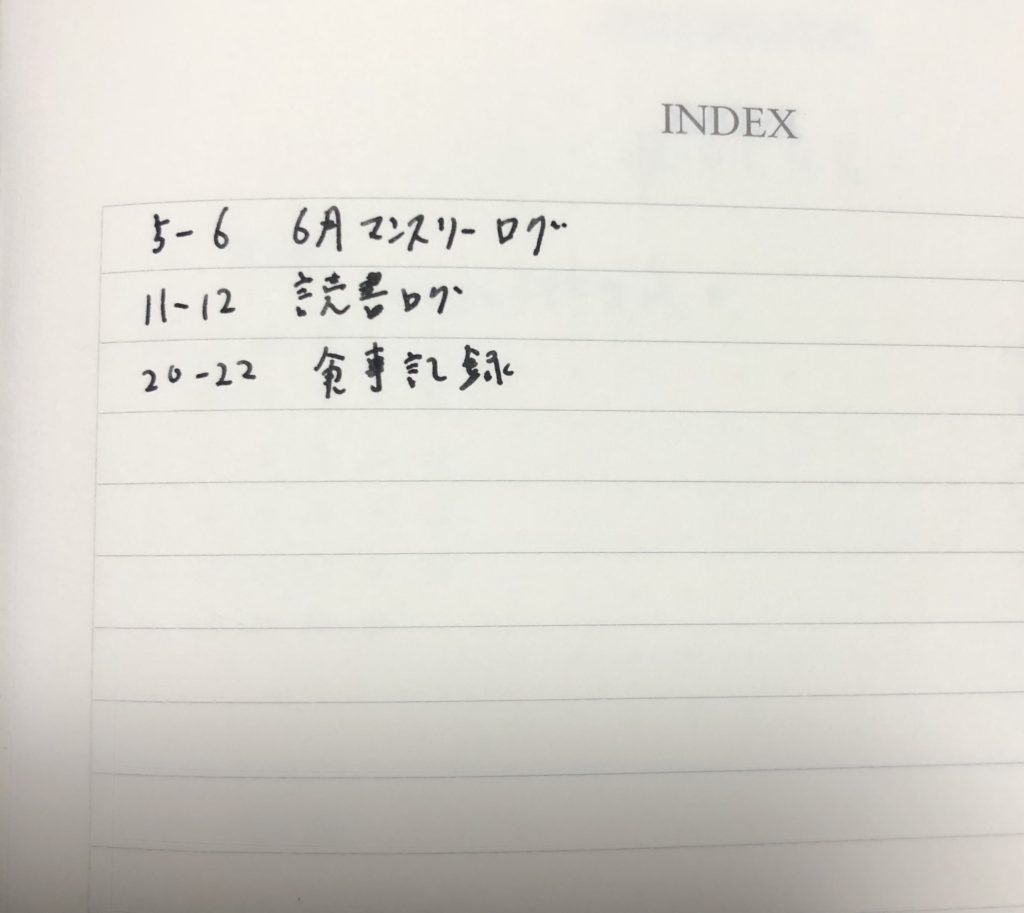 INDEX
5-6 6月マンスリーログ
11-12 読書ログ
20-22 食事記録